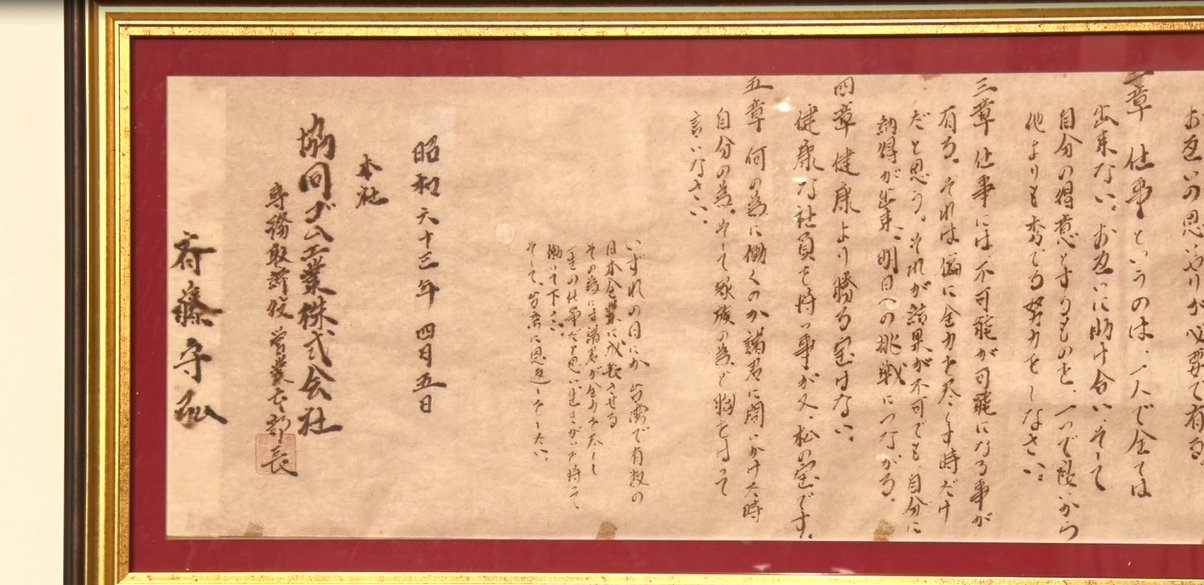 お互いの思いやりが必要で有る
二章 仕事というのは、一人で全ては
出来ない。お互いに助け合い、そして
自分の得意とするものを、一つで良いから
他よりも秀でる努力をしなさい。
三章 仕事には不可能が可能になる事が
有る。それは偏に全力を尽くす時だけ
だと思う。それが結果が不可でも、自分に
納得が出来、明日への挑戦につながる。
四章 健康より勝る宝はない。
健康な社員を持つ事が又、私の宝です。
五章 何の為に働くのか諸君に問いかけた時
自分の為、そして家族の為と胸をはって
言いなさい。
いずれの日にか、台湾で有数の
日本企業に成長させる
その為には諸君が全力を尽くし
一生の仕事だと思い生きがいを持って
働いて下さい。
そして、台湾に恩返しをしたい。
昭和六十三年 四月五日
本社
協同ゴム工業株式会社
専務取締役 営業本部長
斉藤守弘